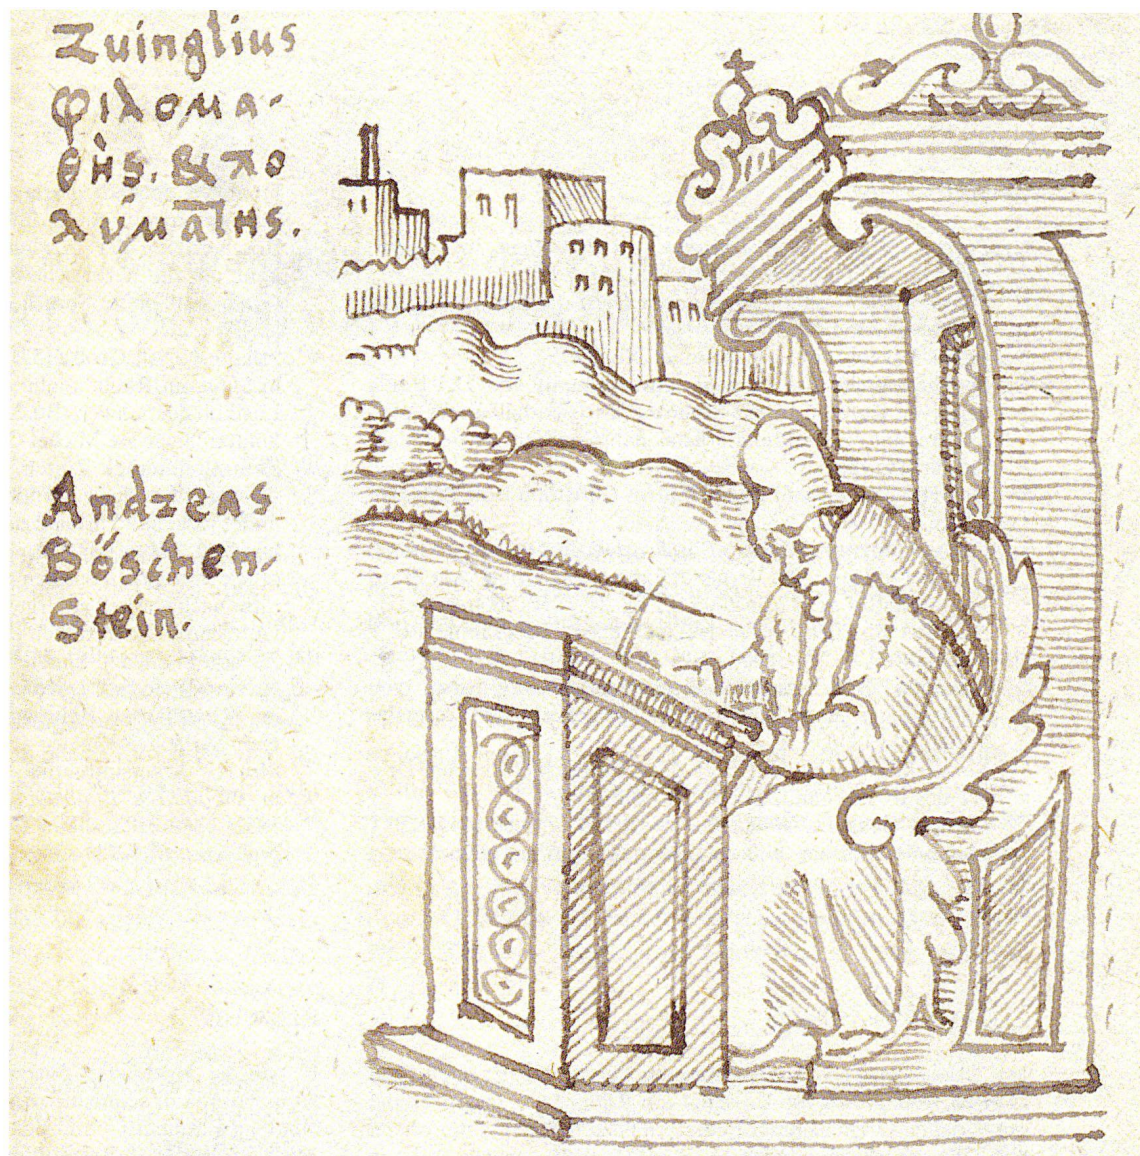 Zuinglius
φιλομα-
θὴς. & πο
λύμαθης.
Andreas
Böschen-
Stein.